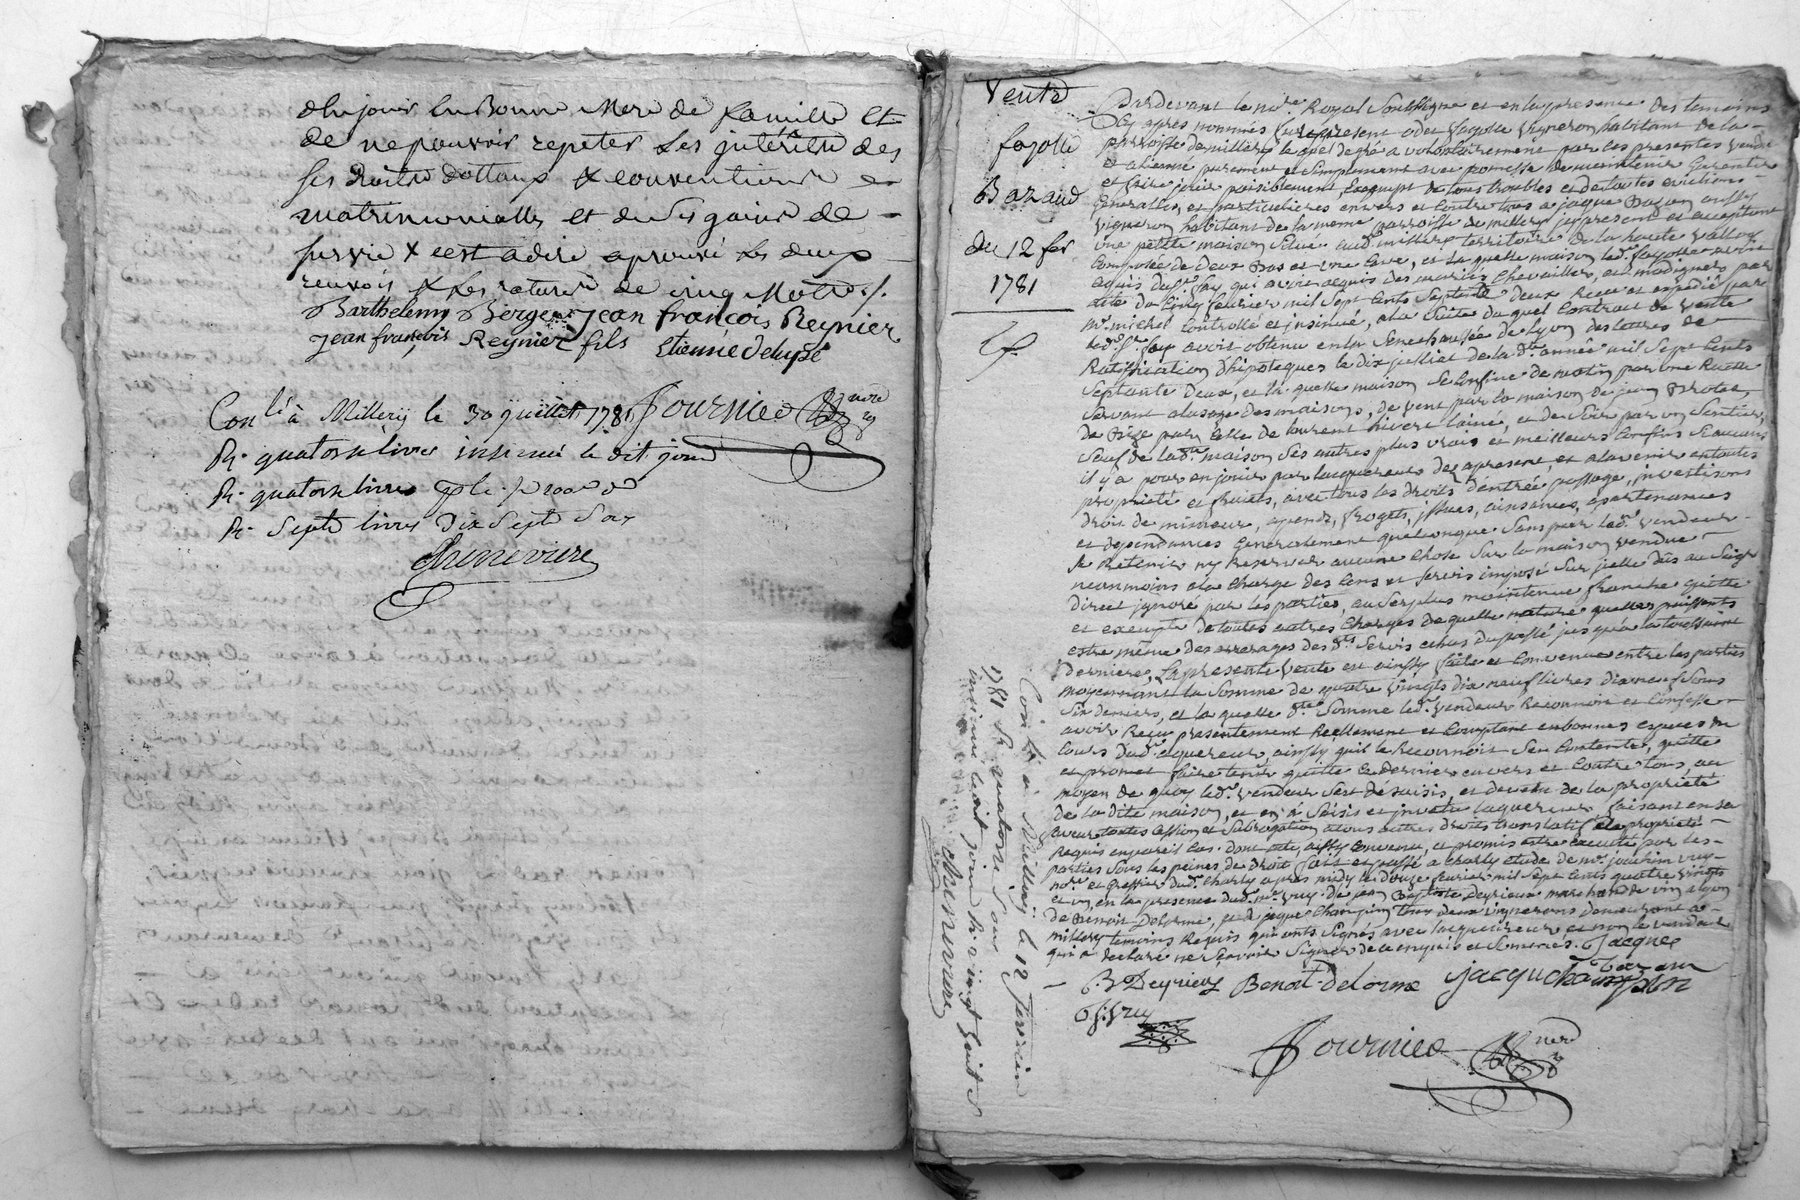 de ne pouvoir repeter ses jntérêtre des
ses Droitre Dottaup & conventions
matrimonialles et de ses gains de -
survie & c'est adire aprouvé les deux
renvois & les rature de cinq Mottre ./.
Barthelemy Berger Jean françois Reynier
jean françois Reynier fils Etienne
Con lé à Millery le 30 juillet 1781 Fournier nere
R. quatorse livres insinué le dit jour
R. quatorse livres
R. Sept livres Dix Sept Sous
Chenevière
Vente
fayolle
Bazaud
du 12 fer
1781
Pardevant le nre Royal Soussigné et en la presence des temoins
cy apres nommés fut present fayolle vigneron habitant de la
parroisse de millery lequel de gré a volontairement par les presentes vendu
et aliéné purement et simplement avec promesse de maintenir Garantir
et faire jouir paisiblement, Exempt de tous troubles et de toutes evictions
Generalles et particulieres envers et Contre tous a jaque aussy
vigneron habitant de la meme parroisse de millery jcy present et acceptant
une petite maison Scitue aud. millery territoire de la haute vallois
Composée de deux Bas et une Cave, et la quelle maison led. fayolle avoit
aquis du Sr. fay qui avoit acquis des mariés Chevallier par
acte du Cinq feurier mil Sept Cents Septante deux Recu et expedié par
me. michel Controllé et jnsinué, a la Suite du quel Contrait de vente
led. Sr. fay avoit obtenu en la Senechaussée de Lyon des lettres de
Ratiffication D'hipoteques le dix juillet de la de. année mil Sept Cents
Septante Deux, et la quelle maison Se Confine de matin par une Ruette
Servant a lusage des maisons, de vent par la maison de jean
de Bize par Celle de laurent hivert lainé, et de Soir par un Sentier,
Sauf de lade. maison Ses autres plus vrais et meilleurs Confins Si aucuns
il y a pour en jouir par lacquereur dez apresent, et alavenir en toutte
proprieté et fruits, avec tous les droits d'entrée passage, jnvestisons
droit de minieur, fruits, jssues, aisances, apartenances
et dependances Generalement quelconque Sans par led. vendeur
Se Retenir ny Reserver aucune Chose Sur la maison vendue
neanmoins a la Charge des Cens et Servis imposé Sur jcelle dûs au Seigr
direct jgnoré par les parties, au Surplus maintenue franche quitte
et exempte de toutes autres Charges de quelle nature quelles puissent
estre même des arrerages des dts. Servis echus du passé jusqu'a la toussaint
derniere, La presente vente est ainssy faite et Convenue entre les parties
moyennant la Somme de quatre vingts dix neuf livres dix neuf Sous
Six deniers, et la quelle dte. Somme led. vendeur Reconnoit et Confesse
avoir Reçu presentement Reellement et Comptant en bonnes especes du
Cours dud. aquereur ainssy quil le Reconnoit Se Contente, quitte
et promet faire tenir quitte ce dernier envers et Contre tous, au
moyen de quoy led. vendeur Sest desaisis, et devetu de la proprieté
de la dite maison, et en a Saisis et jnvetu lacquereur faisant en Sa
faveur toutes Cession et Subrogation a tous autres droits translatif de proprieté
Requis en pareil Cas. Dont acte, aussy Convenu, et promis estre executé par les
parties Sous les peines de Droit fait et passé a Charly etude de me. joachim vruy
nore. et Greffier dud. Charly apres midy le douze feurier mil Sept Cents quatre vingts
et un, en la presence dud. me. vruy. De jean Baptiste Deyrieux marchand de vin a lyon
de Benoit Delorme, et de jaque Champin tous deux vignerons demeurant a
millery temoins Requis qui onts Signés avec lacquereur et non le vendeur
qui a declaré ne Scavoir Signer de ce enquis et Sommé. Jacque
J. B. Deyrieux Benoit Delorme jacque Champin
Fournier nere
Con lé à Millery le 12 Fevrier
1781 R. quatorse Sous
insinué le dit jour R. vingt huit s
Chenevière